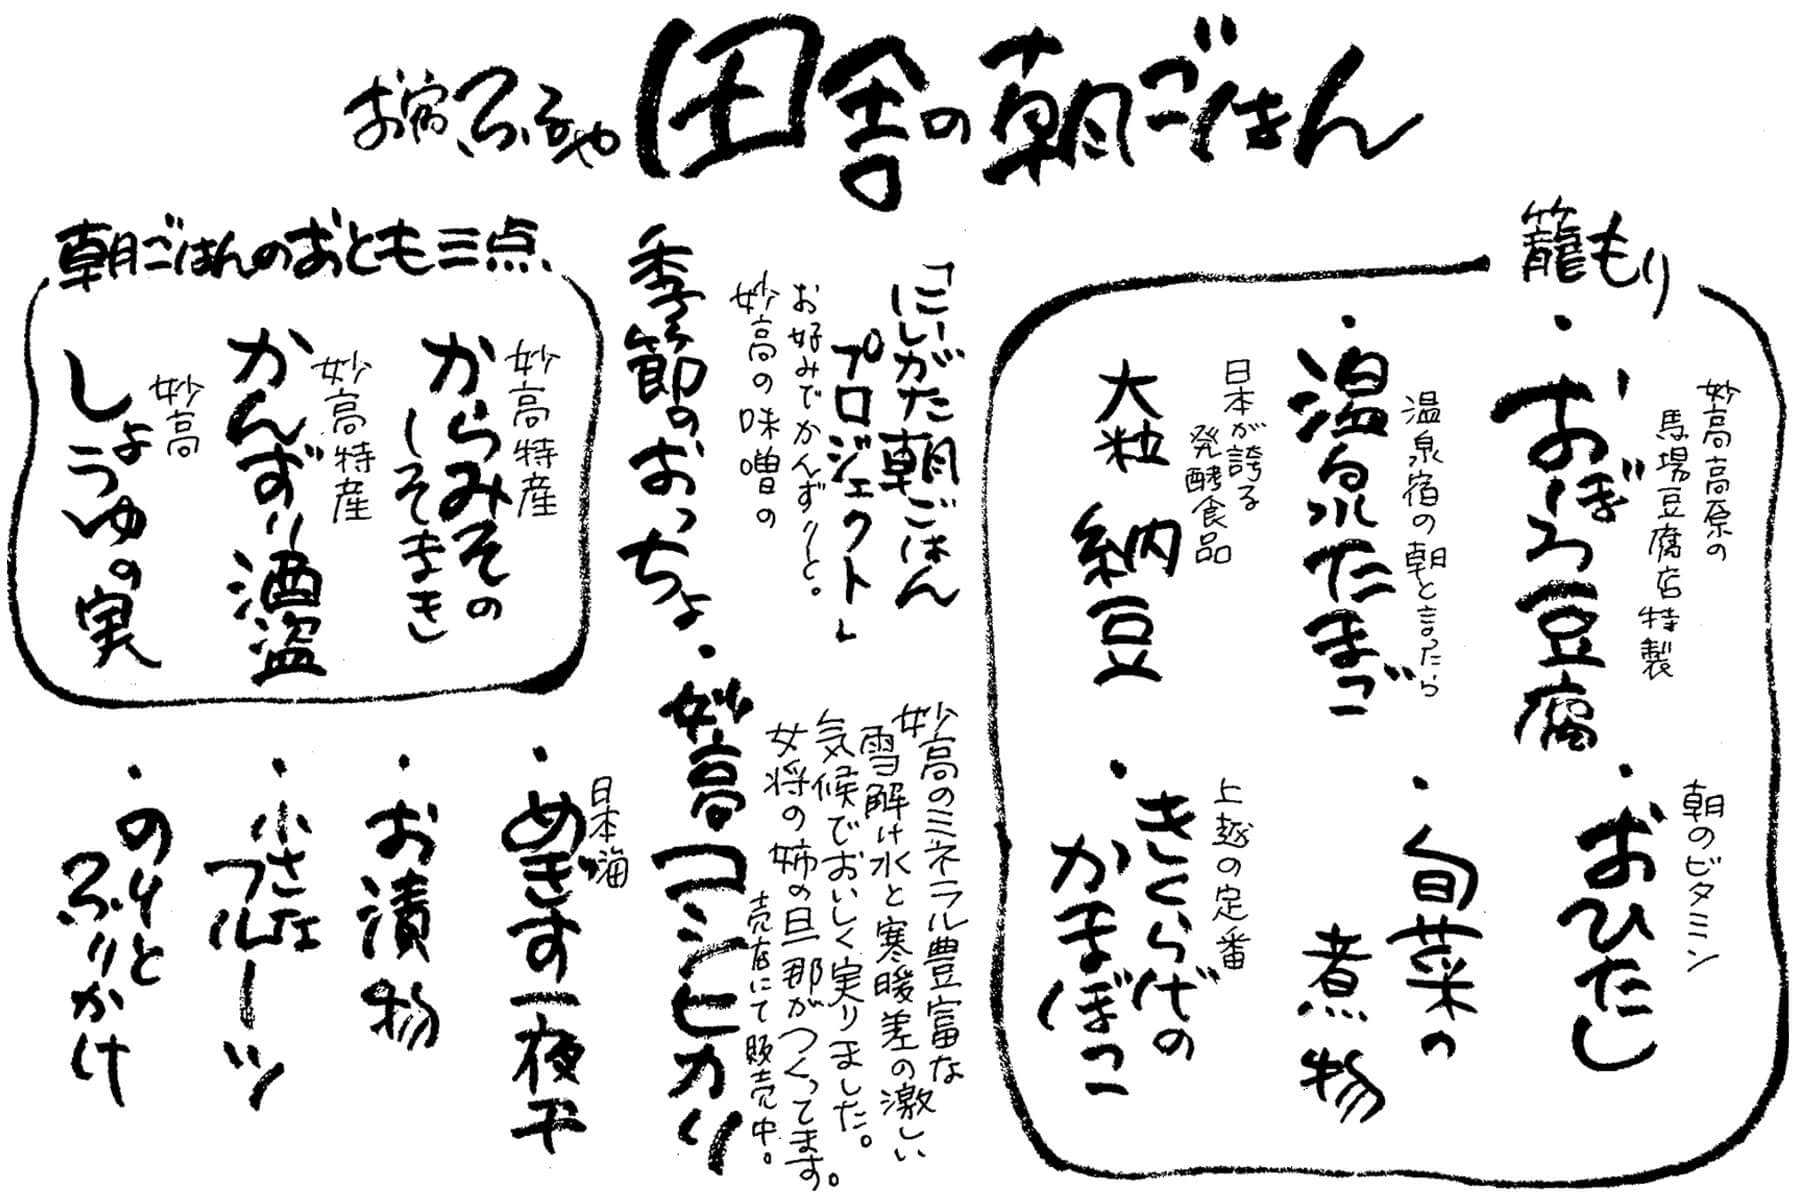 お宿ふるや 田舎の朝ごはん
籠もり
妙高高原の
馬場豆腐店特製
・おぼろ豆腐
温泉宿の朝と言ったら
・温泉たまご
日本が誇る
発酵食品
大粒 納豆
朝のビタミン
・おひたし
・旬菜の
煮物
上越の定番
・きくらげの
かまぼこ
「にいがた朝ごはん
プロジェクト」
お好みでかんずりと。
妙高の味噌の
季節のおっちょ
妙高のミネラル豊富な
雪解け水と寒暖差の激しい
気候でおいしく実りました。
女将の姉の旦那がつくってます。
売店にて販売中。
・妙高コシヒカリ
朝ごはんのおとも三点
妙高特産
からみその
しそまき
妙高特産
かんずり酒盗
妙高
しょうゆの実
日本海
・めぎす一夜干
・お漬物
・小さな
フルーツ
・のりと
ふりかけ